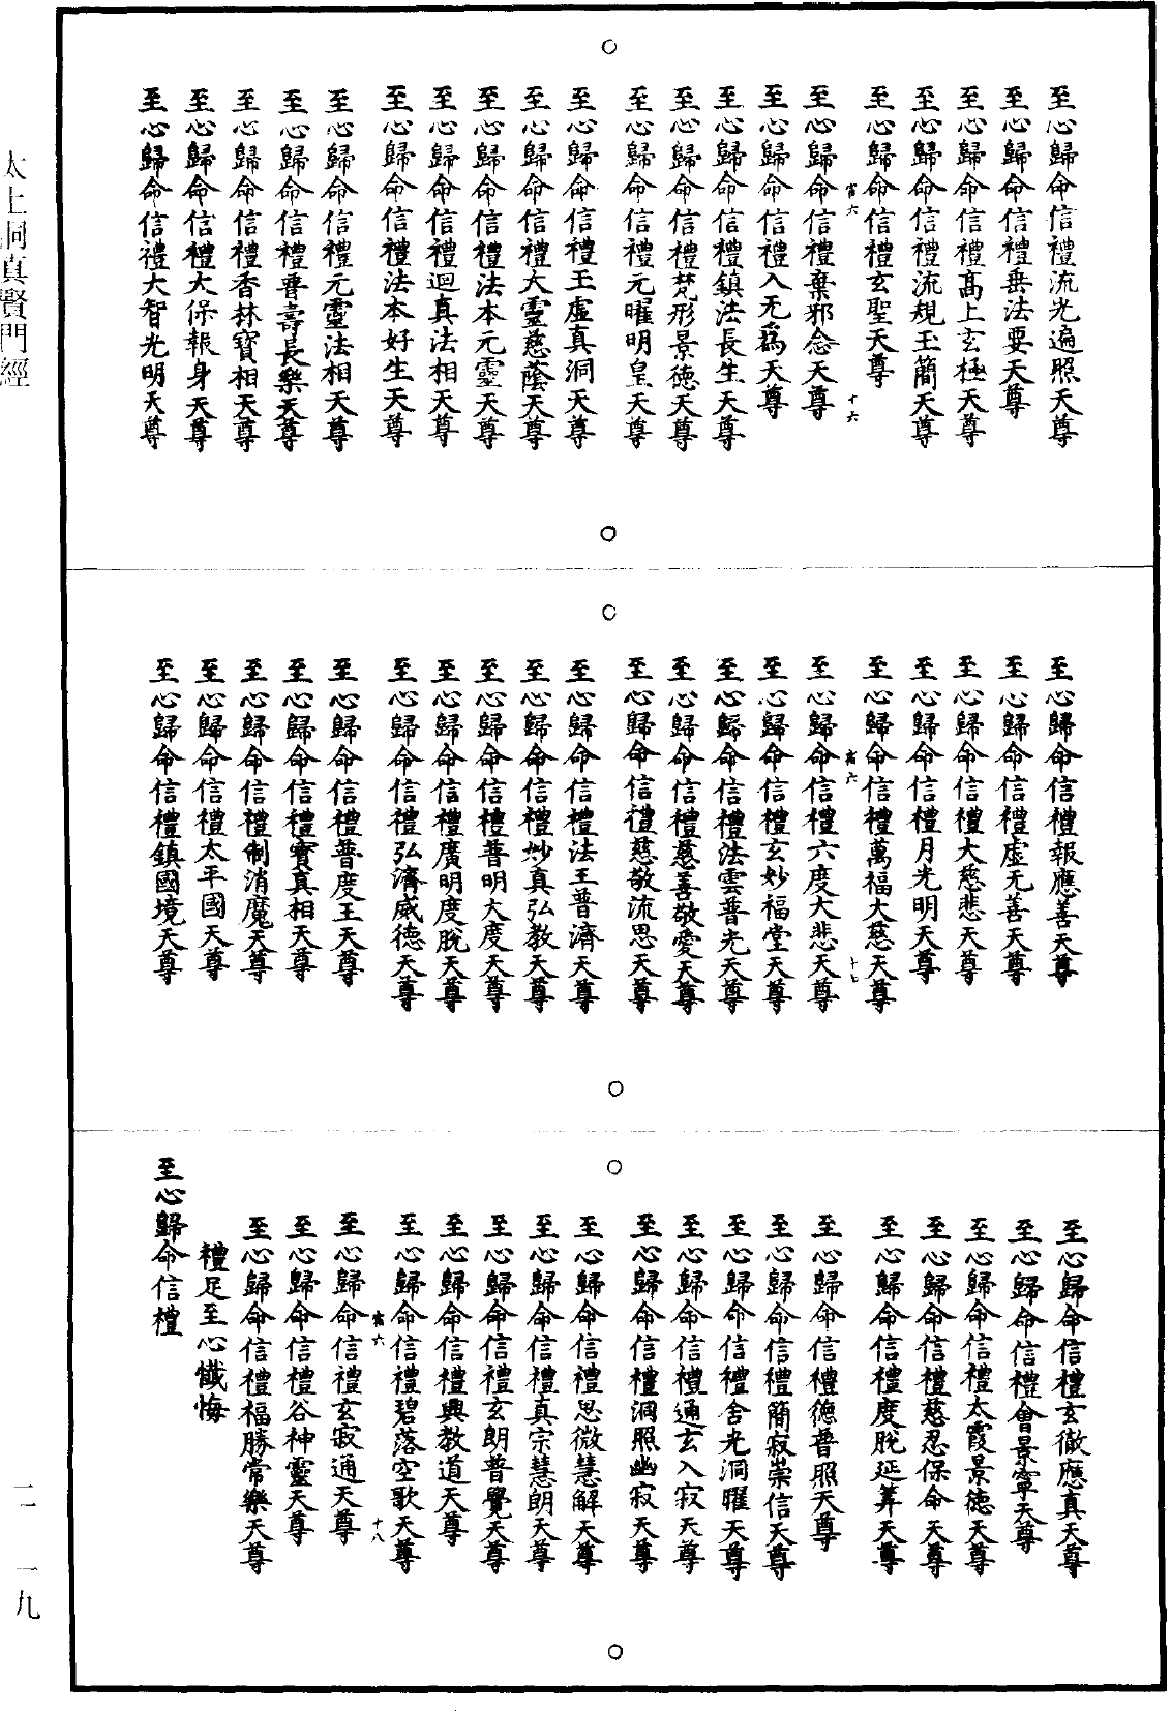 至心歸命信禮流光遍照天尊
至心歸命信禮垂法要天尊
至心歸命信禮高上玄極天尊
至心歸命信禮流規玉簡天尊
至心歸命信禮玄聖天尊
六
十六
至心歸命信禮棄邪念天尊
至心歸命信禮入无爲天尊
至心歸命信禮鎮法長生天尊
至心歸命信禮梵形景德天尊
至心歸命信禮元曜明皇天尊
至心歸命信禮玉虛真洞天尊
至心歸命信禮大靈慈蔭天尊
至心歸命信禮法本元靈天尊
至心歸命信禮迴真法相天尊
至心歸命信禮法本好生天尊
至心歸命信禮元靈法相天尊
至心歸命信禮普壽長樂天尊
至心歸命信禮香林寶相天尊
至心歸命信禮大保報身天尊
至心歸命信禮大智光明天尊
至心歸命信禮報應善天尊
至心歸命信禮虛无善天尊
至心歸命信禮大慈悲天尊
至心歸命信禮月光明天尊
至心歸命信禮萬福大慈天尊
六
十七
至心歸命信禮六度大悲天尊
至心歸命信禮玄妙福堂天尊
至心歸命信禮法雲普光天尊
至心歸命信禮慈善敬愛天尊
至心歸命信禮慈敬流思天尊
至心歸命信禮法王普濟天尊
至心歸命信禮妙真弘教天尊
至心歸命信禮普明大度天尊
至心歸命信禮廣明度脫天尊
至心歸命信禮弘濟威德天尊
至心歸命信禮普度王天尊
至心歸命信禮寶真相天尊
至心歸命信禮制消魔天尊
至心歸命信禮太平國天尊
至心歸命信禮鎮國境天尊
至心歸命信禮玄徹應真天尊
至心歸命信禮會景寧天尊
至心歸命信禮太霞景德天尊
至心歸命信禮慈忍保命天尊
至心歸命信禮度脫延筭天尊
至心歸命信禮德普照天尊
至心歸命信禮簡寂崇信天尊
至心歸命信禮舍光洞曜天尊
至心歸命信禮通玄入寂天尊
至心歸命信禮洞照幽寂天尊
至心歸命信禮思微慧解天尊
至心歸命信禮真宗慧朗天尊
至心歸命信禮玄朗普覺天尊
至心歸命信禮興教道天尊
至心歸命信禮碧落空歌天尊
六
十八
至心歸命信禮玄寂通天尊
至心歸命信禮谷神靈天尊
至心歸命信禮福勝常樂天尊
禮足至心懺悔
至心歸命信禮
太上洞真賢門經
二 一九